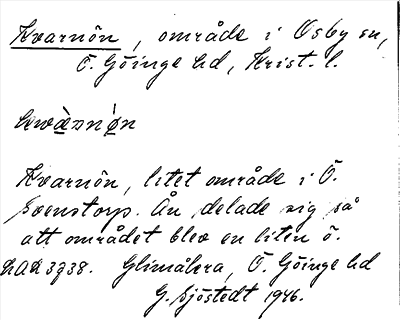 Kvarnön, område i Osby sn,
Ö. Göinge hd, Krist. l.
Kvarnön, litet område i Ö.
Svenstorp. Ån delade sig så
att området blev en liten ö.
Glimåkra, Ö. Göinge hd
G. Sjöstedt 1946.